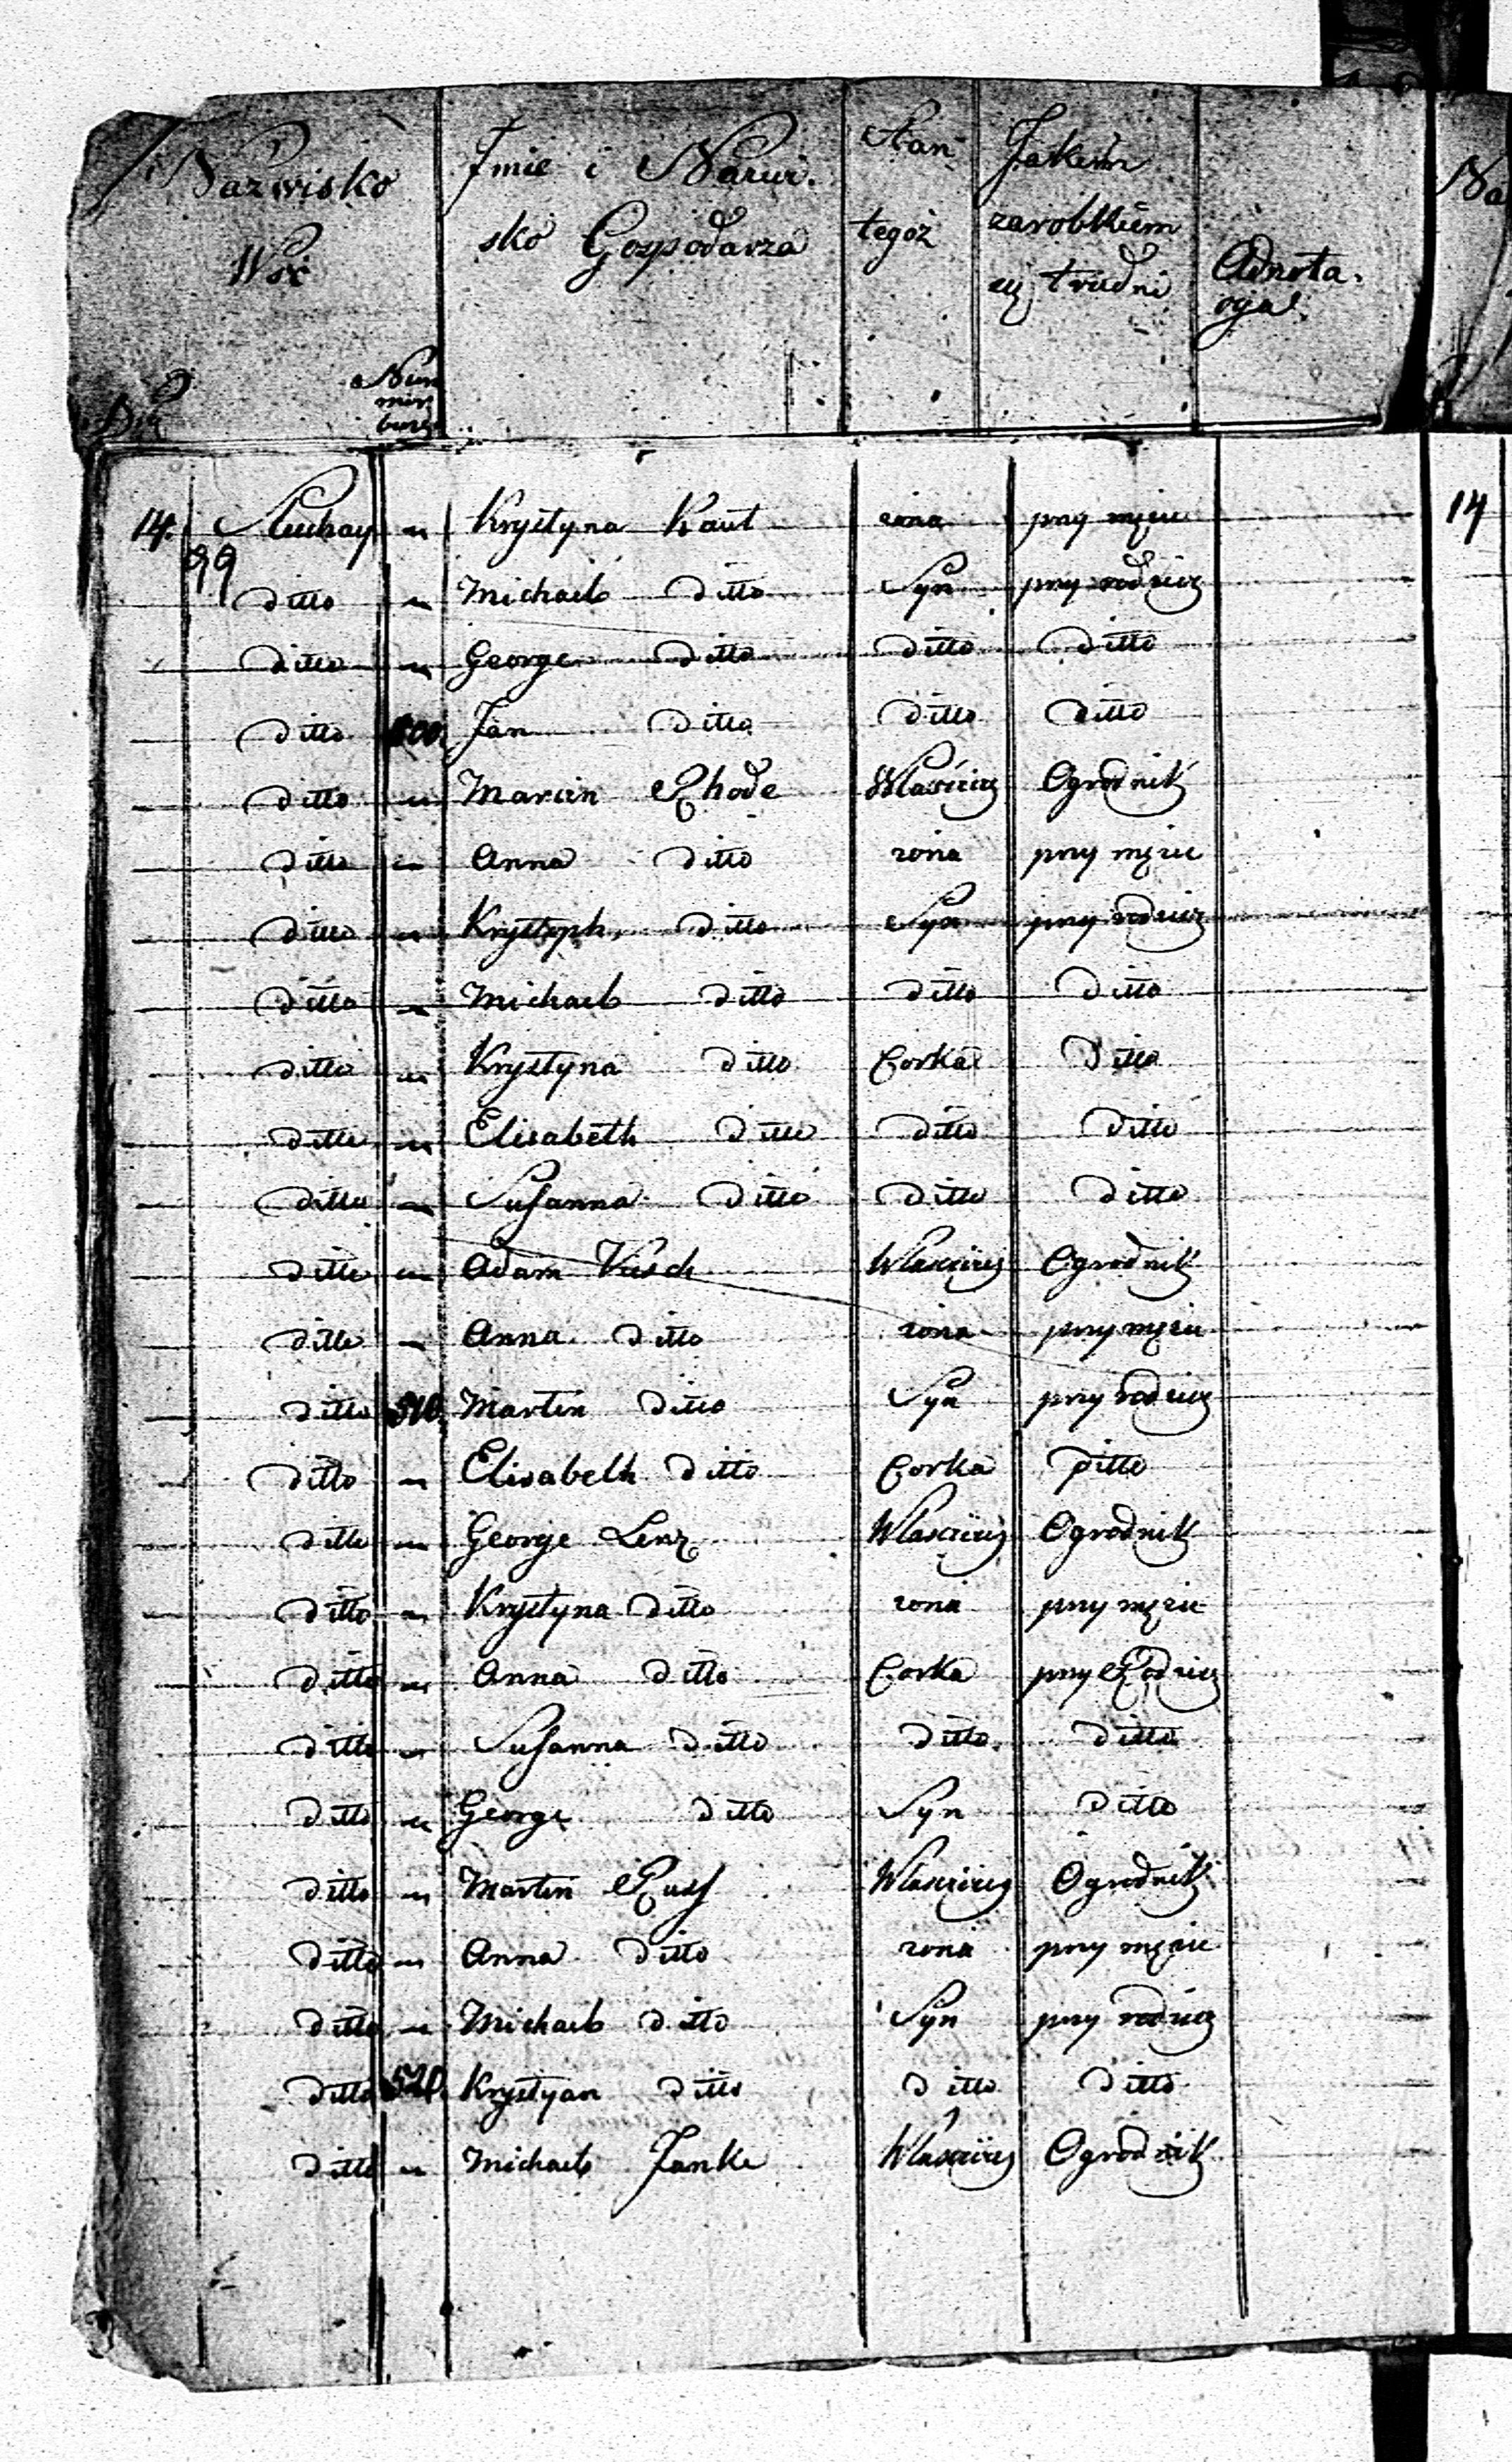 Nazwisko Wsi
Imie i Nazwisko Gospodarza
Stan tegoż
Jakiem zarobkiem się trudni
Adnotacja
14. Krystyna Kaut żona przy mężu 14
99
ditto Michael ditto Syn przy rodzicz
ditto George ditto ditto ditto
ditto Jan ditto ditto ditto
ditto Marcin Rhode Własciciel Ogrodnik
ditto Anna ditto zona przy mężu
ditto Krystoph ditto Syn przy rodzicz
ditto Michael ditto ditto ditto
ditto Krystyna ditto Corka ditto
ditto Elisabeth ditto ditto ditto
ditto Susanna ditto ditto ditto
ditto Adam Wlasciciel Ogrodnik
ditto Anna ditto zona przy mężu
ditto 510. Martin ditto Syn przy rodzicz
ditto Elisabeth ditto Corka ditto
ditto George Lenz Wlasciciel Ogrodnik
ditto Krystyna ditto zona przy mężu
ditto Anna ditto Corka przy Rodzicz
ditto Susanna ditto ditto ditto
ditto George ditto Syn ditto
ditto Martin Russ Wlasciciel Ogrodnik
ditto Anna ditto zona przy mężu
ditto Michael ditto Syn przy rodzicz
ditto 520. Krystyan ditto ditto ditto
ditto Michael Janke Wlasciciel Ogrodnik